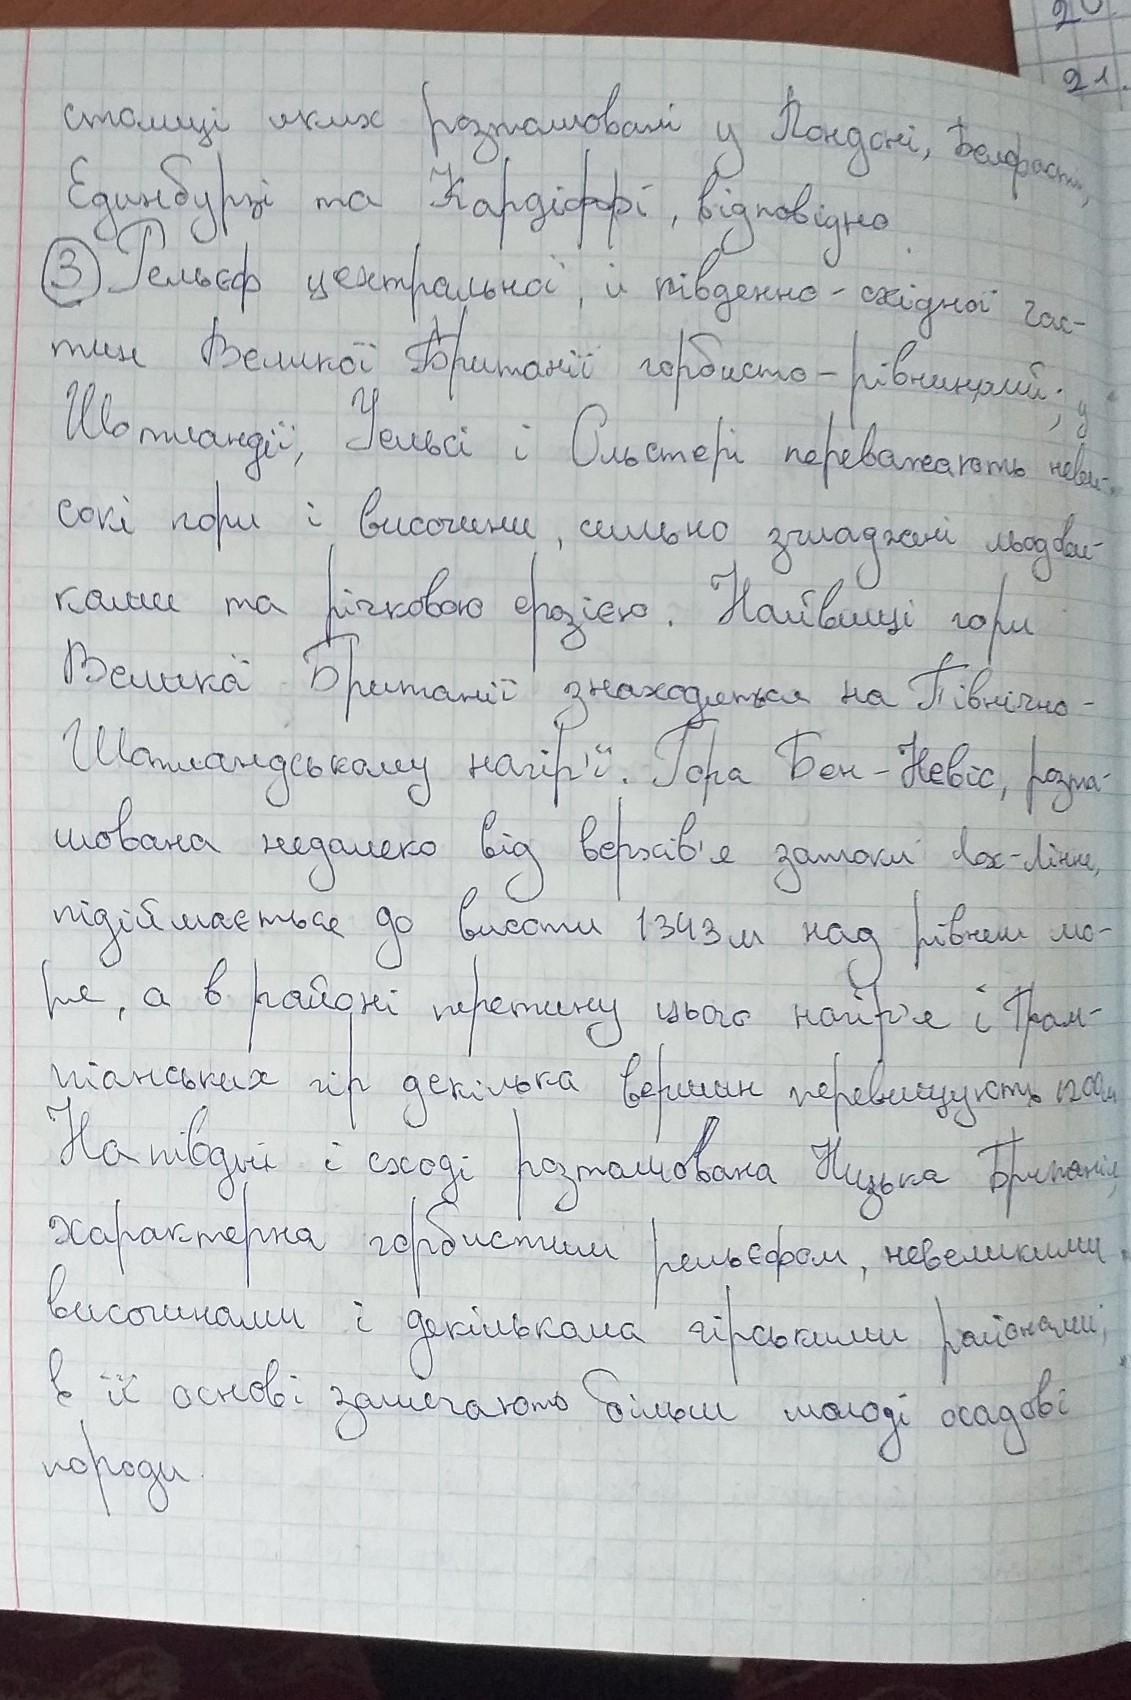 20
21.
столиці яких розташовані у Лондоні, Белфасті,
Единбурзі та Кардіффі, відповідно.
3 Рельєф центральної й південно-східної час-
тин Великої Британії горбисто-рівнинний; у
Шотландії, Уельсі і Ольстері переважають неви-
сокі гори і височини, сильно згладжені льодови-
ками та річковою ерозією. Найвищі гори
Великої Британії знаходяться на Північно-
Шотландському нагір'ї. Гора Бен-Невіс, розта-
шована недалеко від верхів'я затоки Лох-Лінне,
підіймається до висоти 1343м над рівнем мо-
ря, а в районі перетину цього найр'я і Грам-
піанських гір декілька вершин перевищують 1200м
На півдні і сході розташована Низька Британія,
характерна горбистим рельєфом, невеликими
височинами і декількома гірськими районами,
в її основі залягають більш молоді осадові
породи.